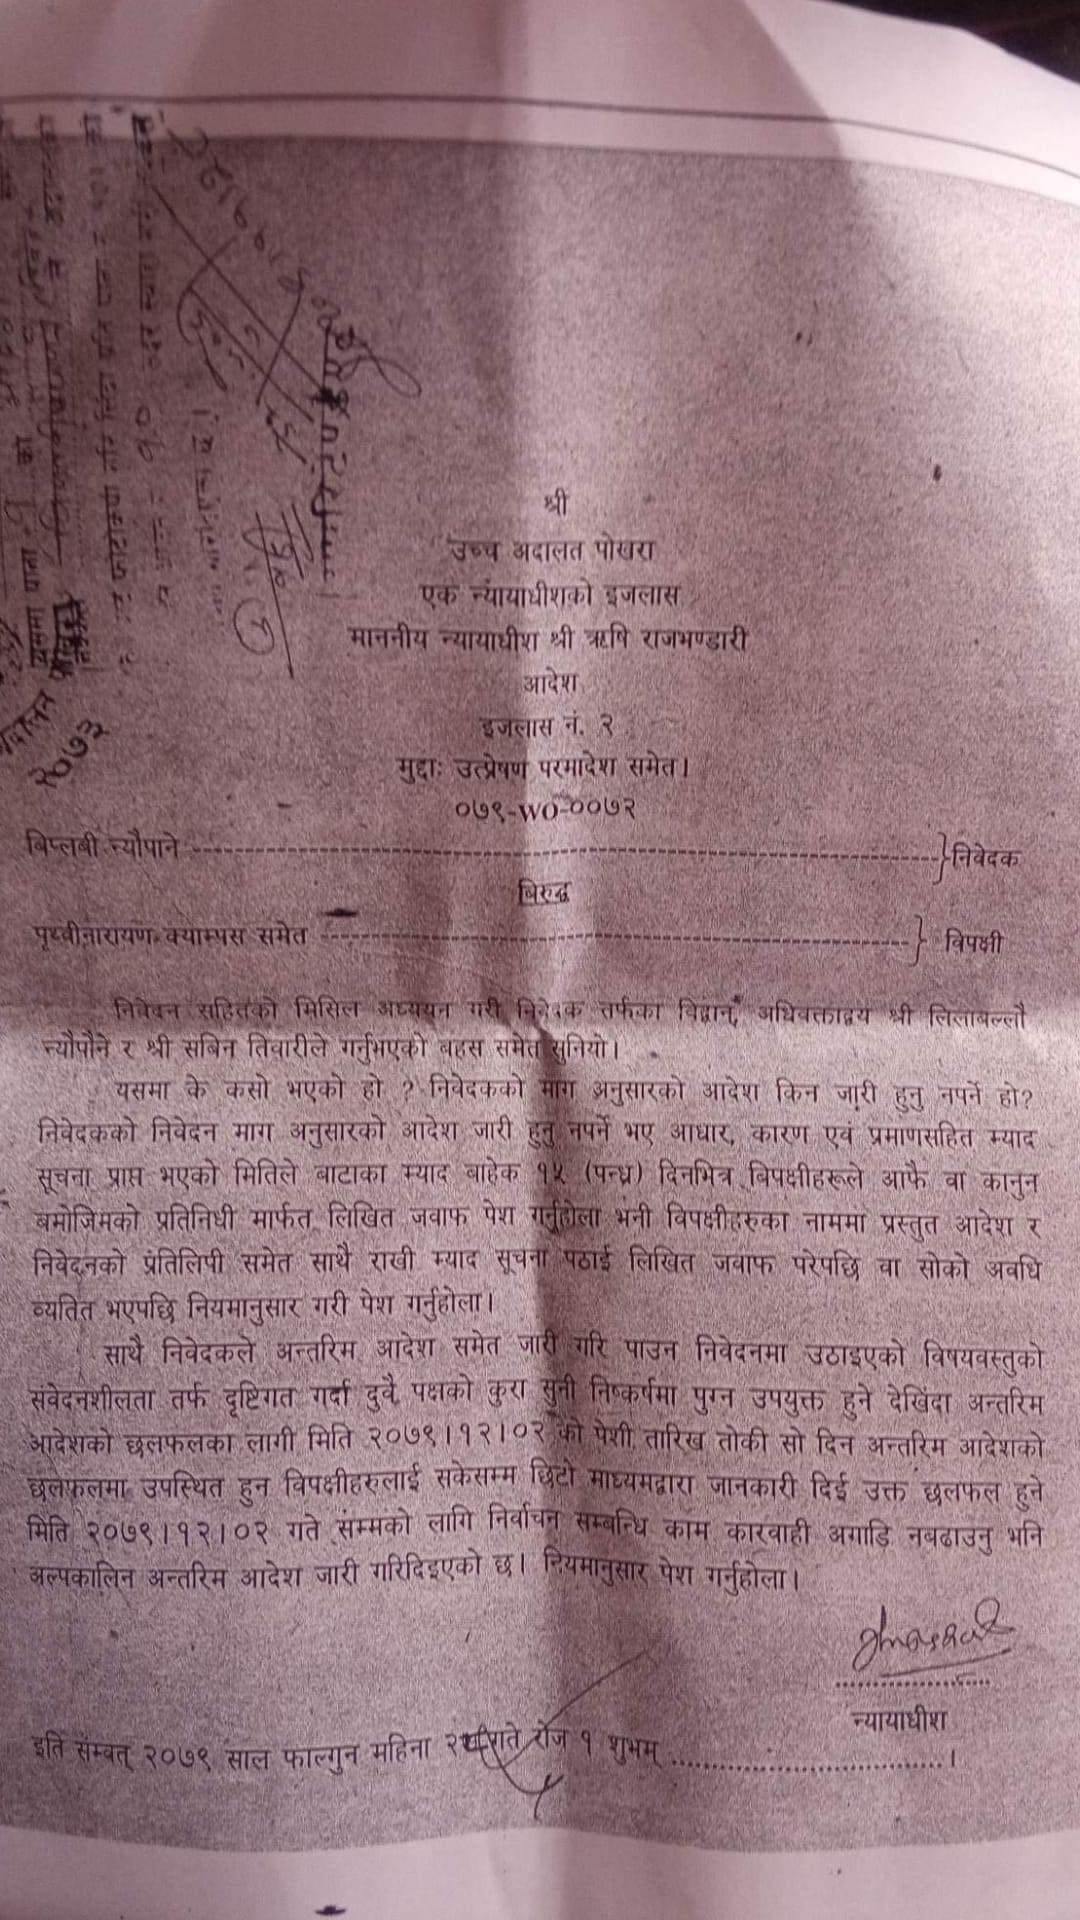 श्री
उच्च अदालत पोखरा
एक न्यायाधीशको इजलास
माननीय न्यायाधीश श्री ऋषि राजभण्डारी
आदेश
इजलास नं. २
मुद्दाः उत्प्रेषण परमादेश समेत।
०७९-WO-००७२
बिप्लबी न्यौपाने ----------------------------------------}निवेदक
बिरुद्ध
पृथ्वीनारायण क्याम्पस समेत ----------------------------------------} विपक्षी
निवेदन सहितको मिसिल अध्ययन गरी निवेदक तर्फका विद्वान् अधिवक्ताद्वय श्री लिलाबल्लौ
न्यौपौने र श्री सबिन तिवारीले गर्नुभएको बहस समेत सुनियो।
यसमा के कसो भएको हो ? निवेदकको माग अनुसारको आदेश किन जारी हुनु नपर्ने हो?
निवेदकको निवेदन माग अनुसारको आदेश जारी हुनु नपर्ने भए आधार, कारण एवं प्रमाणसहित म्याद
सूचना प्राप्त भएको मितिले बाटाका म्याद बाहेक १५ (पन्ध्र) दिनभित्र विपक्षीहरूले आफै वा कानुन
बमोजिमको प्रतिनिधी मार्फत लिखित जवाफ पेश गर्नुहोला भनी विपक्षीहरुका नाममा प्रस्तुत आदेश र
निवेदनको प्रतिलिपी समेत साथै राखी म्याद सूचना पठाई लिखित जवाफ परेपछि वा सोको अवधि
व्यतित भएपछि नियमानुसार गरी पेश गर्नुहोला।
साथै निवेदकले अन्तरिम आदेश समेत जारी गरि पाउन निवेदनमा उठाइएको विषयवस्तुको
संवेदनशीलता तर्फ दृष्टिगत गर्दा दुवै पक्षको कुरा सुनी निष्कर्षमा पुग्न उपयुक्त हुने देखिंदा अन्तरिम
आदेशको छलफलका लागी मिति २०७९।१२।०२ को पेशी तारिख तोकी सो दिन अन्तरिम आदेशको
छलफलमा उपस्थित हुन विपक्षीहरुलाई सकेसम्म छिटो माध्यमद्वारा जानकारी दिई उक्त छलफल हुने
मिति २०७९।१२।०२ गते सम्मको लागि निर्वाचन सम्बन्धि काम कारवाही अगाडि नबढाउनु भनि
अल्पकालिन अन्तरिम आदेश जारी गरिदिइएको छ। नियमानुसार पेश गर्नुहोला।
न्यायाधीश
इति सम्वत् २०७९ साल फाल्गुन महिना गते रोज १ शुभम् ........................।
२०७३